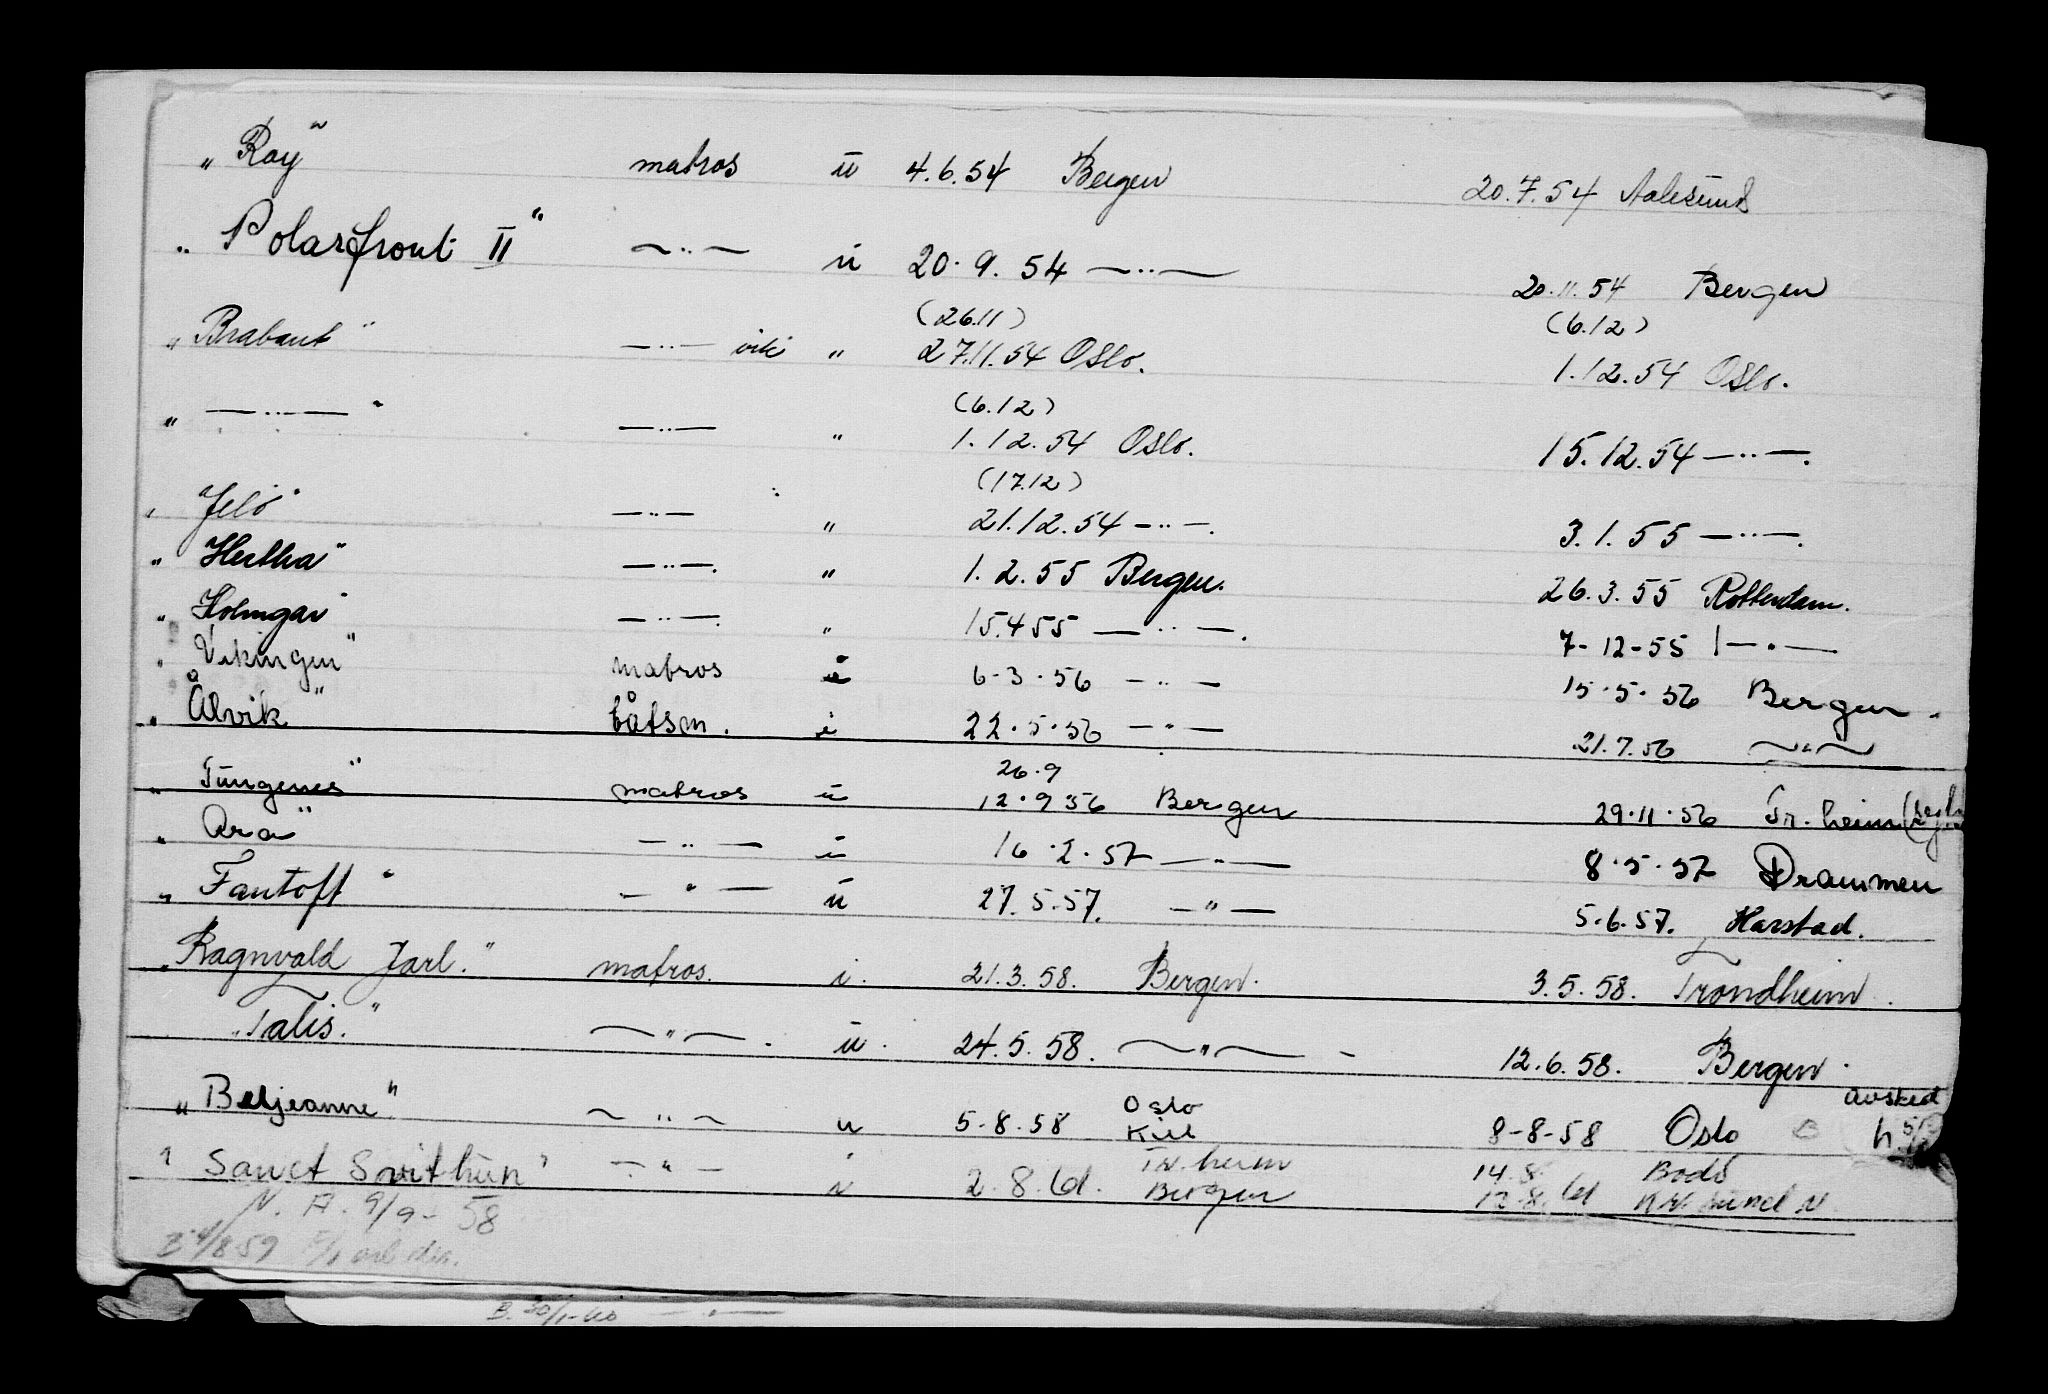 „Ray" matros u 4.6.54 Bergen 20.7.54 Aalesund
„Polarfront II" —"— u 20.9.54 —"— 20.11.54 Bergen
(26.11) (6.12)
„Brabant" —"— vik " 27.11.54 Oslo. 1.12.54 Oslo.
(6.12)
„ —"— " —"— " 1.12.54 Oslo. 15.12.54 —"—.
(17.12)
„Jelö" —"— " 21.12.54 —"—. 3.1.55 —"—.
„Hertha" —"—. " 1.2.55 Bergen. 26.3.55 Rotterdam.
„Holmgar" —"—. " 15.4.55 —"—. 7-12-55 —"—
„Vikingen" matros u 6-3.56 —"— 15.5.56 Bergen.
„Ålvik" båtsm. i 22.5.56 —"— 21.7.56 —"—
26.9
„Tungenes" matros u 12.9.56 Bergen 29.11.56 Tr.heim
„Ara" —"— i 16.2.57 —"— 8.5.57 Drammen
„Fantoft" —"— u 27.5.57. —"— 5.6.57. Harstad.
„Ragnvald Jarl." matros. i. 21.3.58. Bergen. 3.5.58. Trondheim.
„Talis." —"—. u. 24.5.58. —"— - 12.6.58. Bergen.
Oslo avsked
„Beljeanne". —"— u 5-8.58 Kiel 8-8-58 Oslo
Tr.heim 14.8. Bodö
"Sanct Svithun" —"— i 2.8.61. Bergen 12.8.61
N. A. 9/9-58
B. 20/1-60 —"—